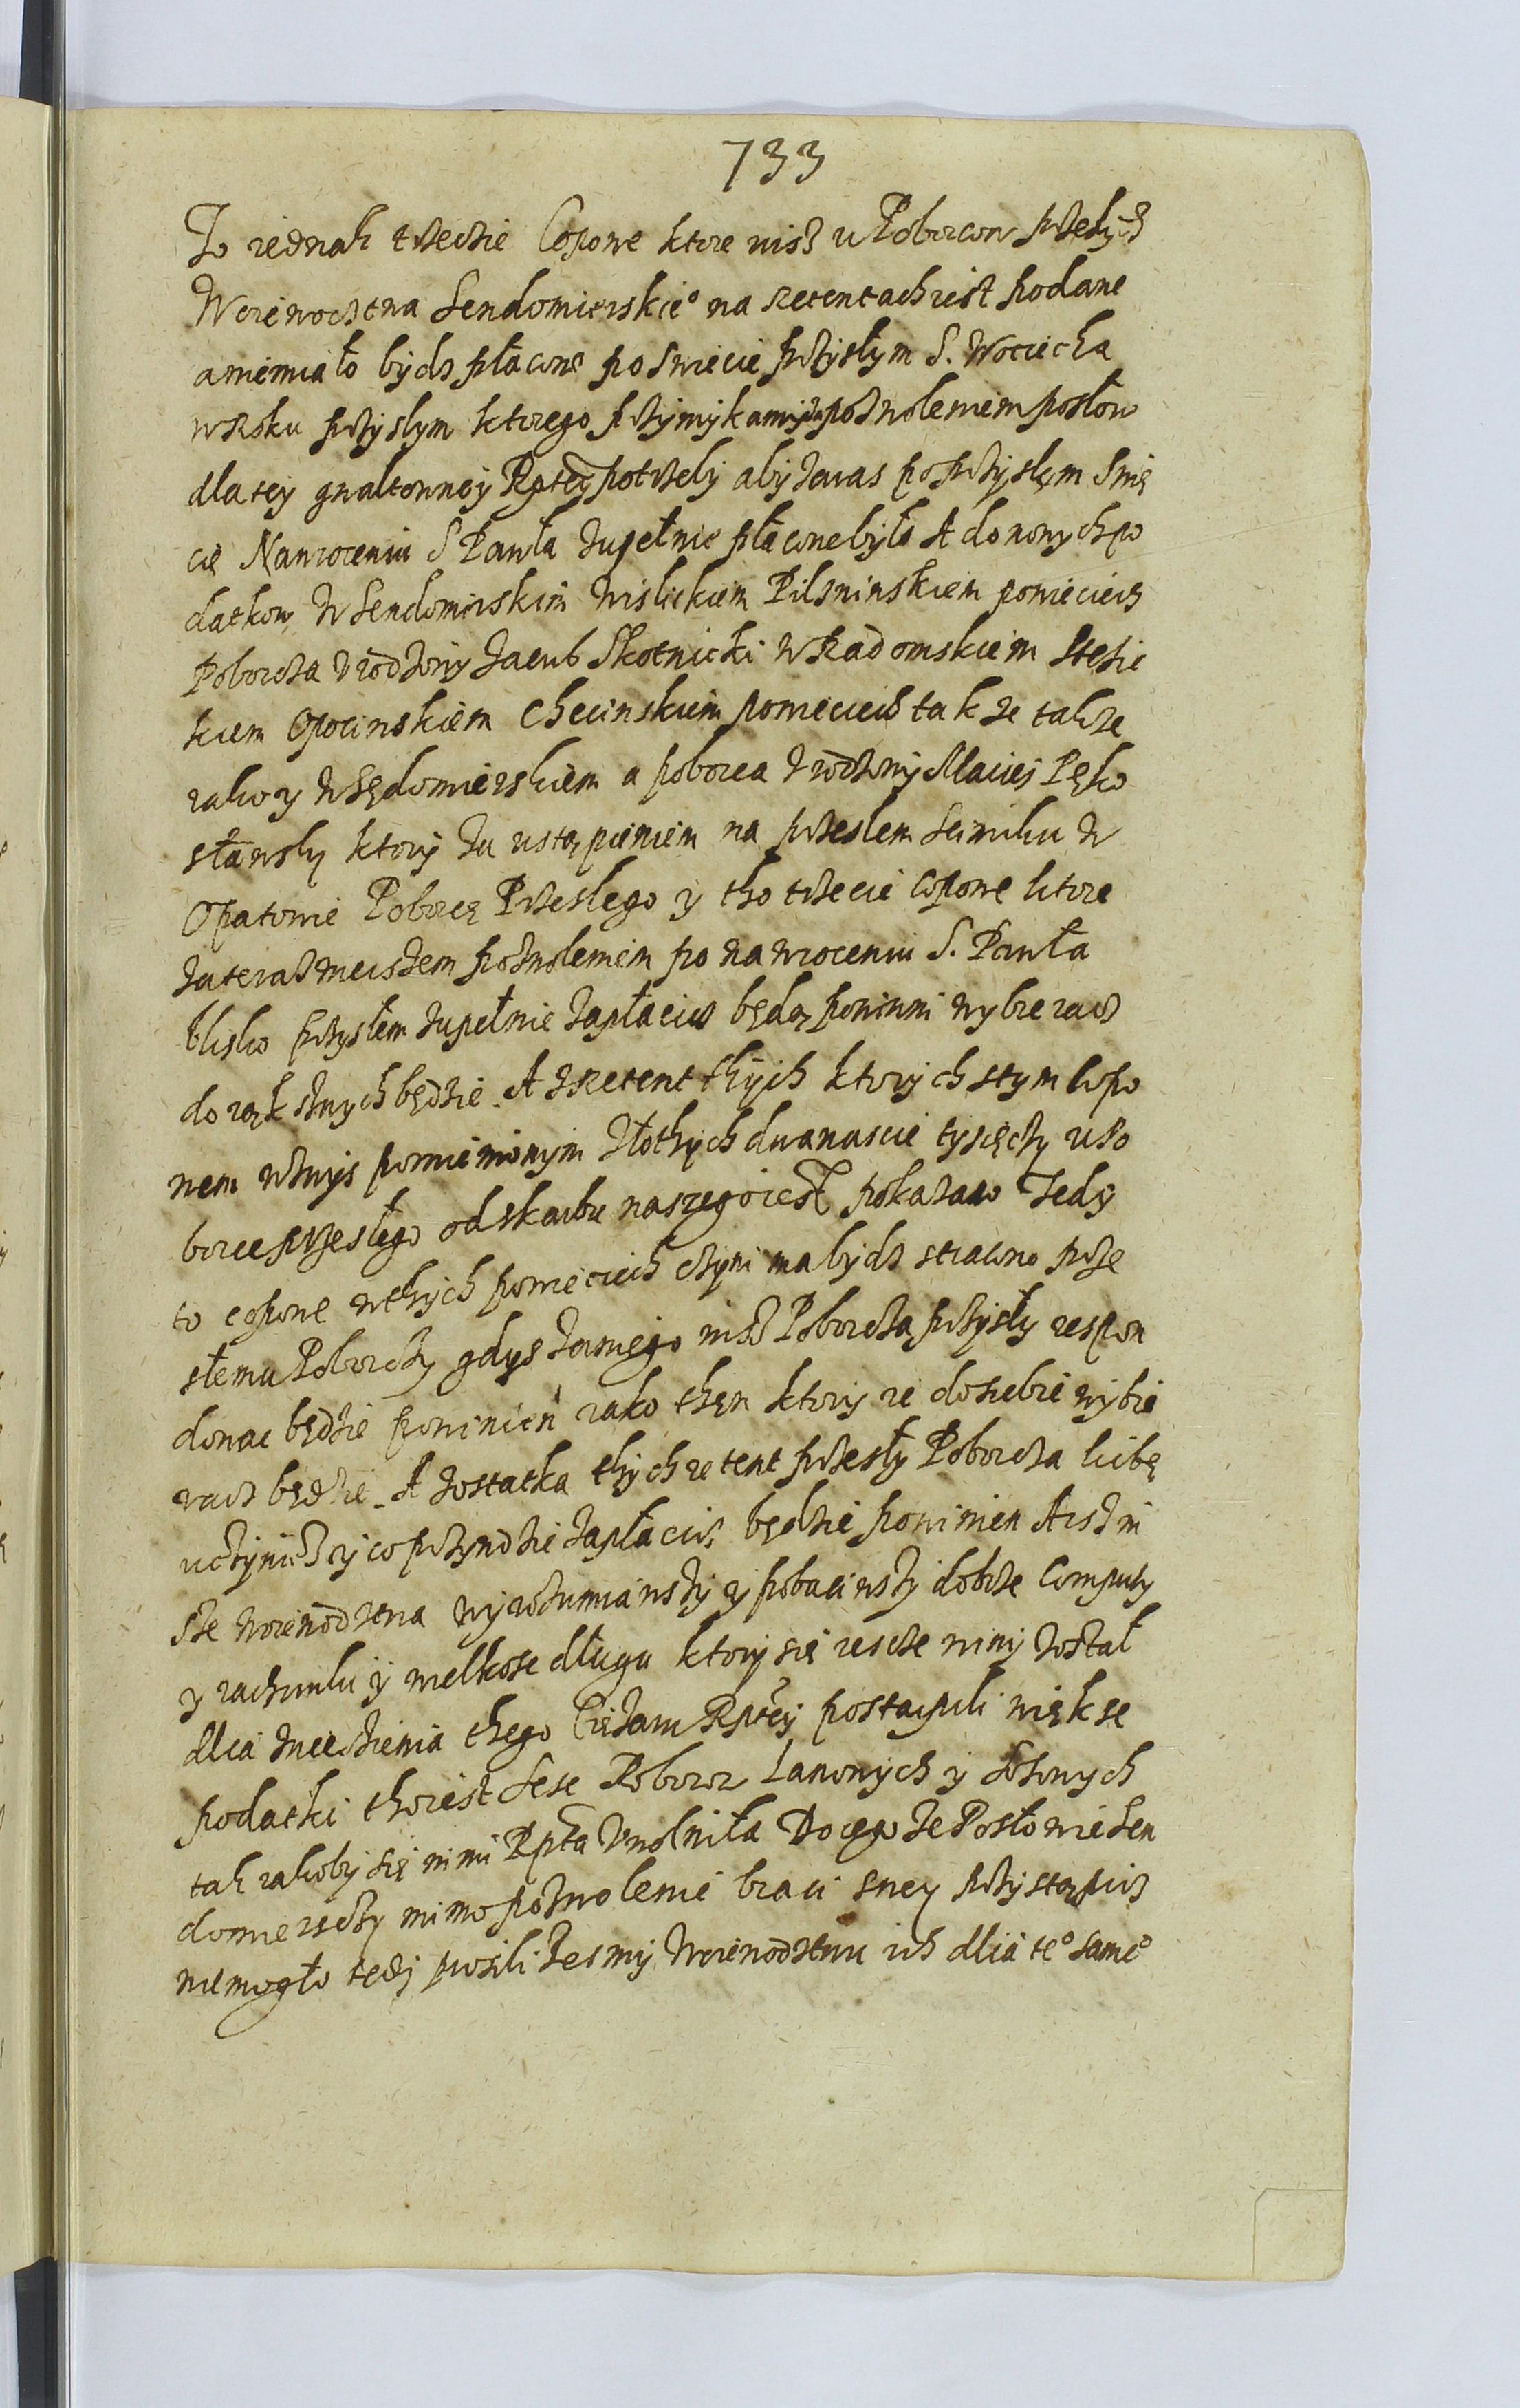 733
To iednak trzecie Copowe ktore nisz u Poborcow przeszłych
Woiewodztwa Sendomierskieº na retentach iest podane
a niemiało bydz płacone po swiecie przyszłym S. Wociecha
w Roku przyszłym ktorego przymykamy za pozwoleniem posłow
dla tey gwałtowney Rptey potrzeby aby zaras po przyszłem Swię
cie Nawroceniu S Pawła zupełnie płacone było A do nowych po
datkow w Sendomirskim Wislickiem Pilsninskiem powieciech
Poborcza Urodzony Jacub Skotnicki w Radomskiem Stezic
kiem Opocinskiem Checinskiem powieciech takze także
iako y w Sędomierskiem a poborca Urodzony Maciej Pęko
sławsky ktory za ustąpieniem na przeszłem Seimiku w
Opatowie Poborcę Przeszłego y tho trzecie Copowe ktore
za teraznieiszem pozwoleniem po nawroceniu S. Pawła
blisko przyszłem zupełnie zapłacicz będą powinni wybieracz
do rąk swych będzie. A z retent thych ktorych s tym Copo
nem wzwys pomienionym złothych dwanascie tysięczy u Po
borce przeszłego od skarbu naszego iest pokazano Tedy
to copowe w thych powieciech czym ma bydz stracono prze
szłemu Poborczy gdysz z samego nisz Poborcza przyszły respon
dowac będzie powinien iako then ktory ie do siebie wybie
racz będzie. A z ostatka thych retent przeszły Poborcza liczbę
uczynicz y co przyndzie zapłacicz będzie powinien A isz in
sze Woiewodztwa wyrozumiawszy y pobaciwszy dobrze Computy
y rachunki y wielkosc długu ktory się iescze winny został
dla zniesienia thego Ciężaru Rptey postąpili większe
podatki tho iest Sesc Poborow Łanowych y Szosowych
tak iakoby się nimi Rpta Uwolniła Do czego że Posłowie Sen
domierscy mimo pozwolenie braci swey przystąpicz
niemogło tedy prosilizesmy Woiewodztwu ich dla teº sameº